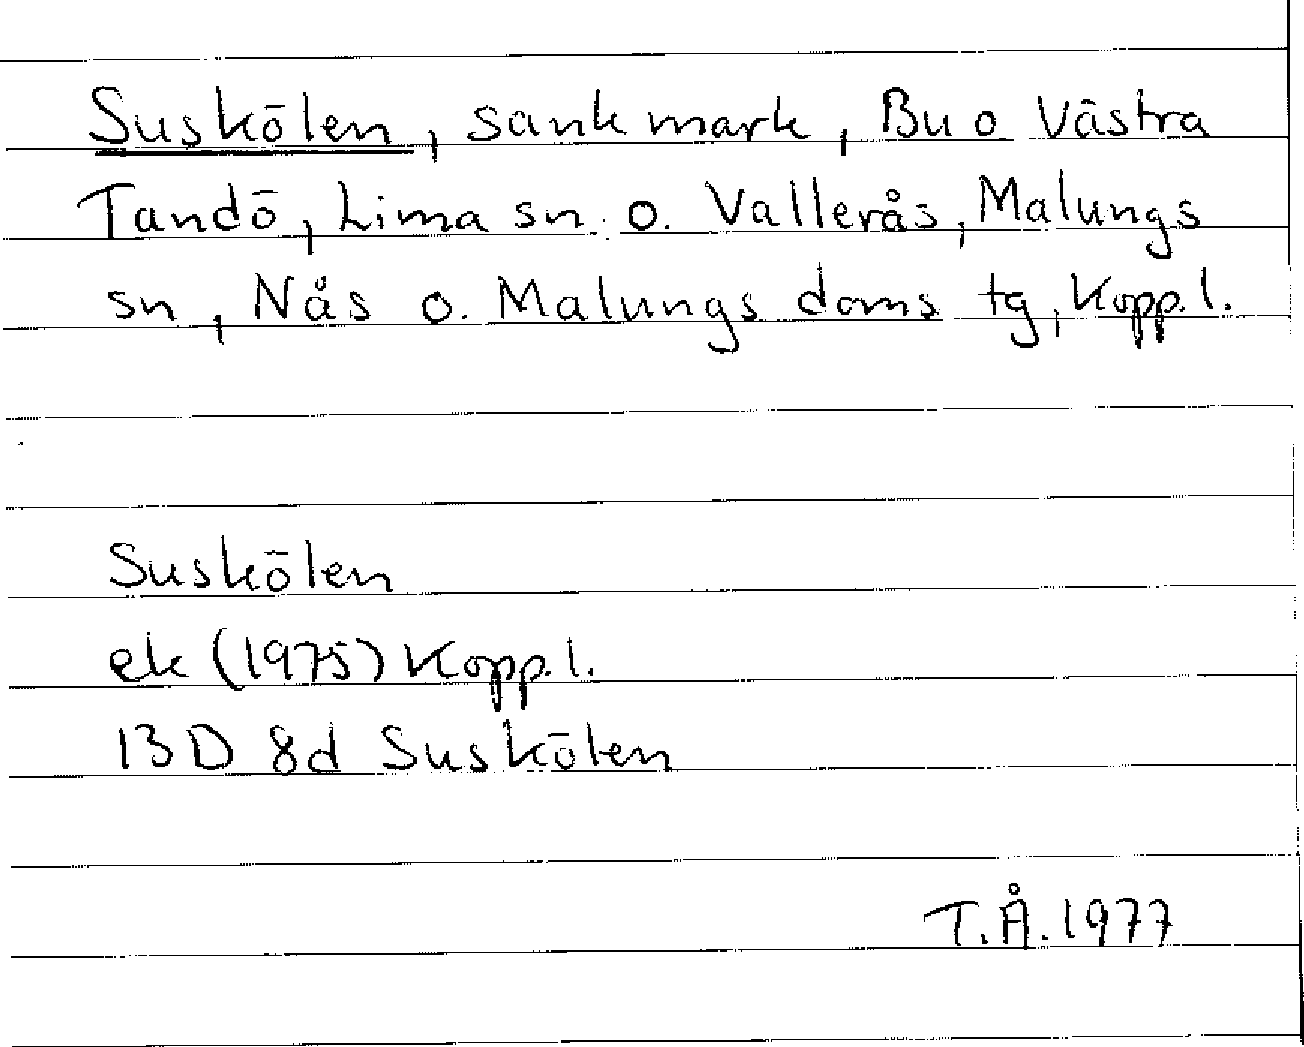 Suskölen, sankmark, Bu o Västra
Tandö, Lima sn. o. Vallerås, Malungs
sn, Nås o. Malungs doms tg, Kopp.l.
Suskölen
ek (1975) Kopp.l.
13D 8d Suskölen
T.Å. 1977